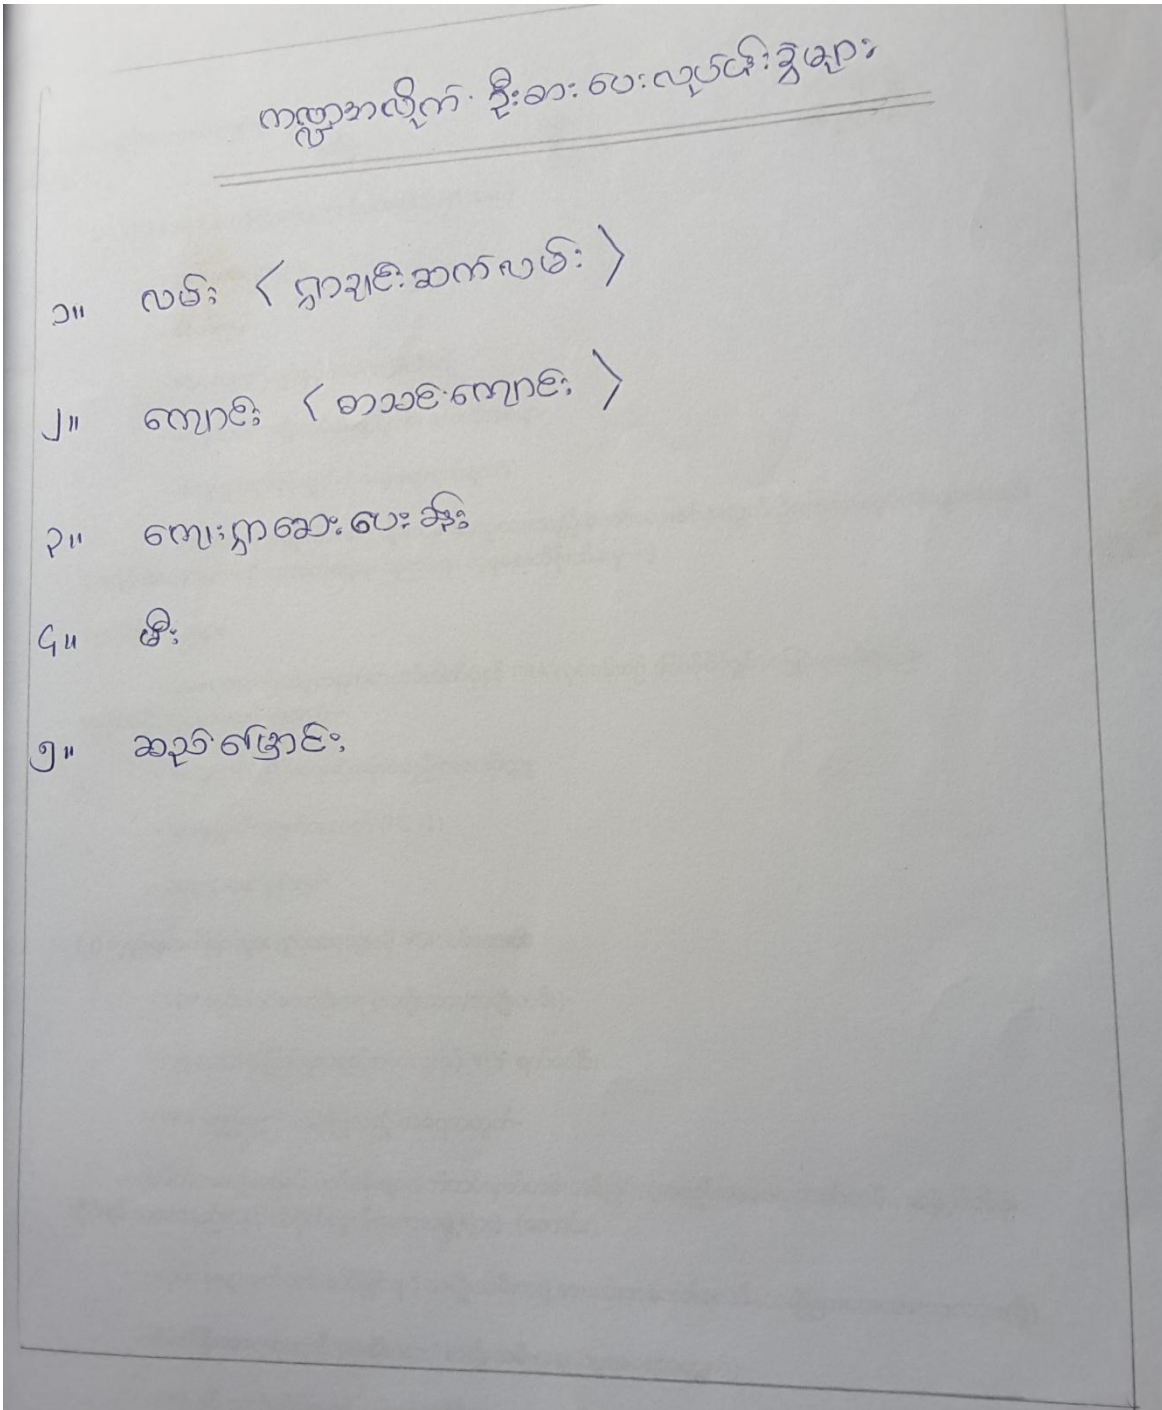 ကဏ္ဍအလိုက် ဦးစားပေးလုပ်ငန်းခွဲများ
၁။ လမ်း ( ရွာချင်းဆက်လမ်း )
၂။ ကျောင်း ( စာသင်ကျောင်း )
၃။ ကျေးရွာဆေးပေးခန်း
၄။ မီး
၅။ ဆည်မြောင်း